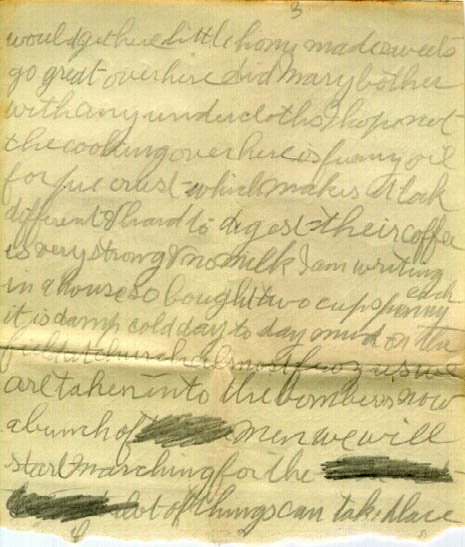 3.
would get here little home made sweets
go great over here did Mary bother
with any undercloths I hope not
the cooking over here is funny oil
for pie crust which makes it look
different & hard to digest their coffee
is very strong & no milk I am writing
in a house so bought two cups penny each
it is damp cold day to day mud on the
field at church almost froze us we
are taken into the bombers now
a bunch of men we will
start marching for the
lot of things can take place